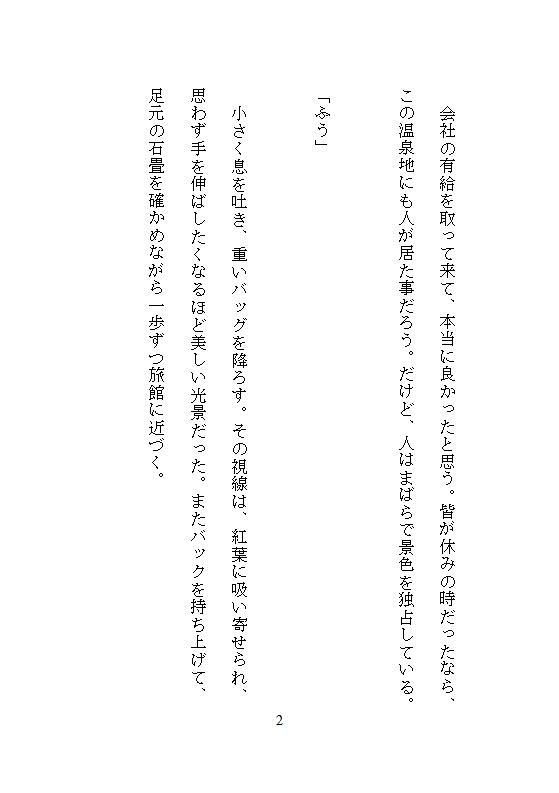 会社の有給を取って来て、本当に良かったと思う。皆が休みの時だったなら、
この温泉地にも人が居た事だろう。だけど、人はまばらで景色を独占している。
「ふう」
　小さく息を吐き、重いバッグを降ろす。その視線は、紅葉に吸い寄せられ、
思わず手を伸ばしたくなるほど美しい光景だった。またバックを持ち上げて、
足元の石畳を確かめながら一歩ずつ旅館に近づく。
2